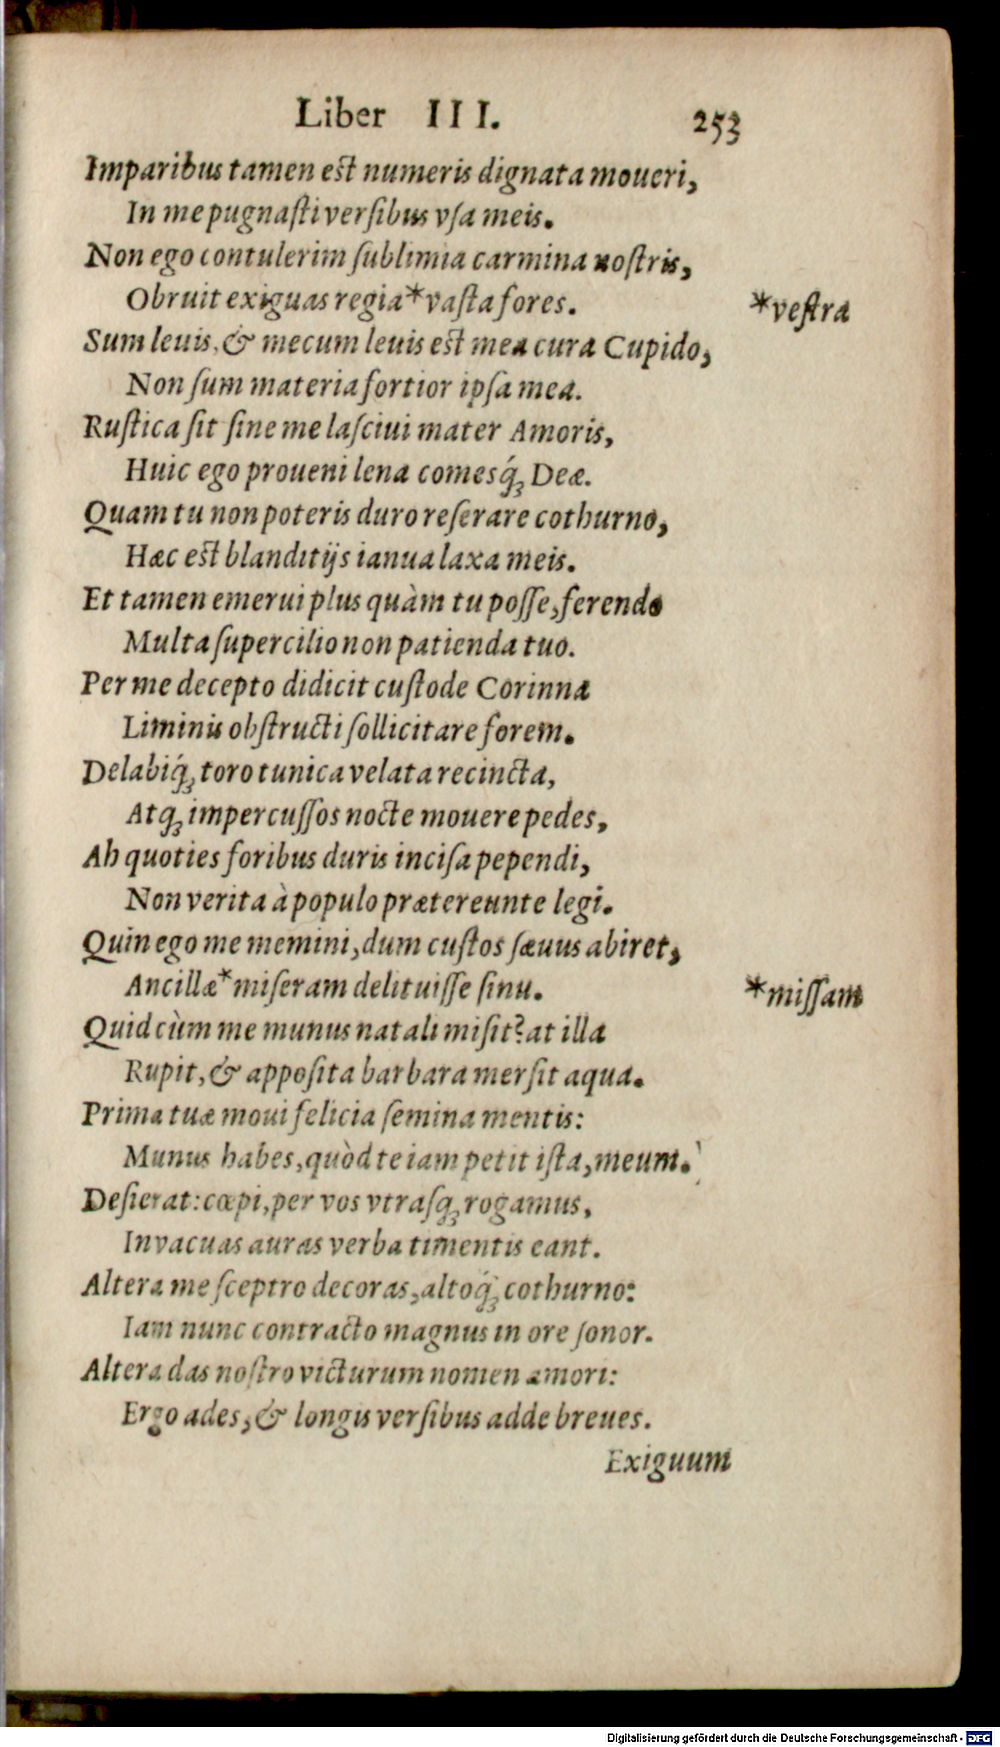 Liber III. 253
Imparibus tamen est numeris dignata moueri,
In me pugnasti versibus vsa meis.
Non ego contulerim sublimia carmina nostris,
Obruit exiguas regia*vasta fores. *vestra
Sum leuis, & mecum leuis est mea cura Cupido,
Non sum materia fortior ipsa mea.
Rustica sit sine me lasciui mater Amoris,
Huic ego proueni lena comesq́; Deæ.
Quam tu non poteris duro reserare cothurno,
Hæc est blanditijs ianua laxa meis.
Et tamen emerui plus quàm tu posse, ferendo
Multa supercilio non patienda tuo.
Per me decepto didicit custode Corinna
Liminis obstructi sollicitare forem.
Delabiq́; toro tunica velata recincta,
Atq; impercussos nocte mouere pedes,
Ah quoties foribus duris incisa pependi,
Non verita à populo prætereunte legi.
Quin ego me memini, dum custos sæuus abiret,
Ancillæ*miseram delituisse sinu. *missam
Quid cùm me munus natali misit? at illa
Rupit, & apposita barbara mersit aqua.
Prima tuæ moui felicia semina mentis:
Munus habes, quòd te iam petit ista, meum.
Desierat: cœpi, per vos vtrasq; rogamus,
In vacuas auras verba timentis eant.
Altera me sceptro decoras, altoq́; cothurno:
Iam nunc contracto magnus in ore sonor.
Altera das nostro victurum nomen amori:
Ergo ades, & longis versibus adde breues.
Exiguum
Digitalisierung gefördert durch die Deutsche Forschungsgemeinschaft - DFG